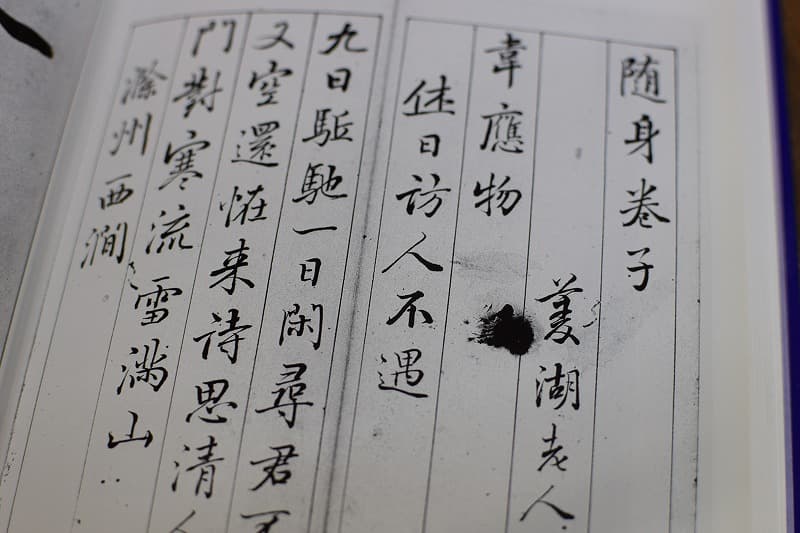 随身卷子
菱湖老人
韋應物
休日訪人不遇
九日駈馳一日閑尋君不
又空還恠来詩思清人
門對寒流雪満山
滁州西澗